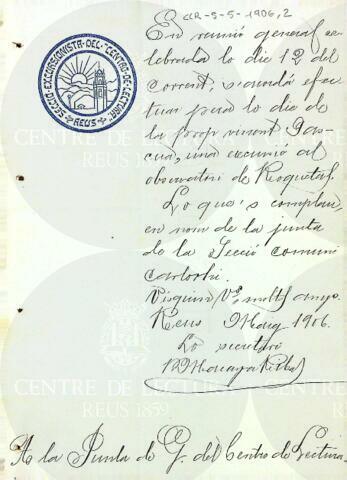 CCR-5-5-1906,2
SECCIÓ EXCURSIONISTA DEL "CENTRO DE LECTURA"
REUS
En reunió general ce-
lebrada lo dia 12 del
corrent, s'acordá efec-
tuar pera lo dia de
la prop vinent Pas-
cua, una excursió al
observatori de Roquetas.
Lo que's complau,
en nom de la junta
de la Secció comuni
carloshi.
Visquin Vs molts anys.
Reus Mars 1906.
Lo secretari
A la Junta de G. del Centro de Lectura.
CENTRE DE LECTURA
REUS 1859
CENTRE DE LECTURA
REUS 1859